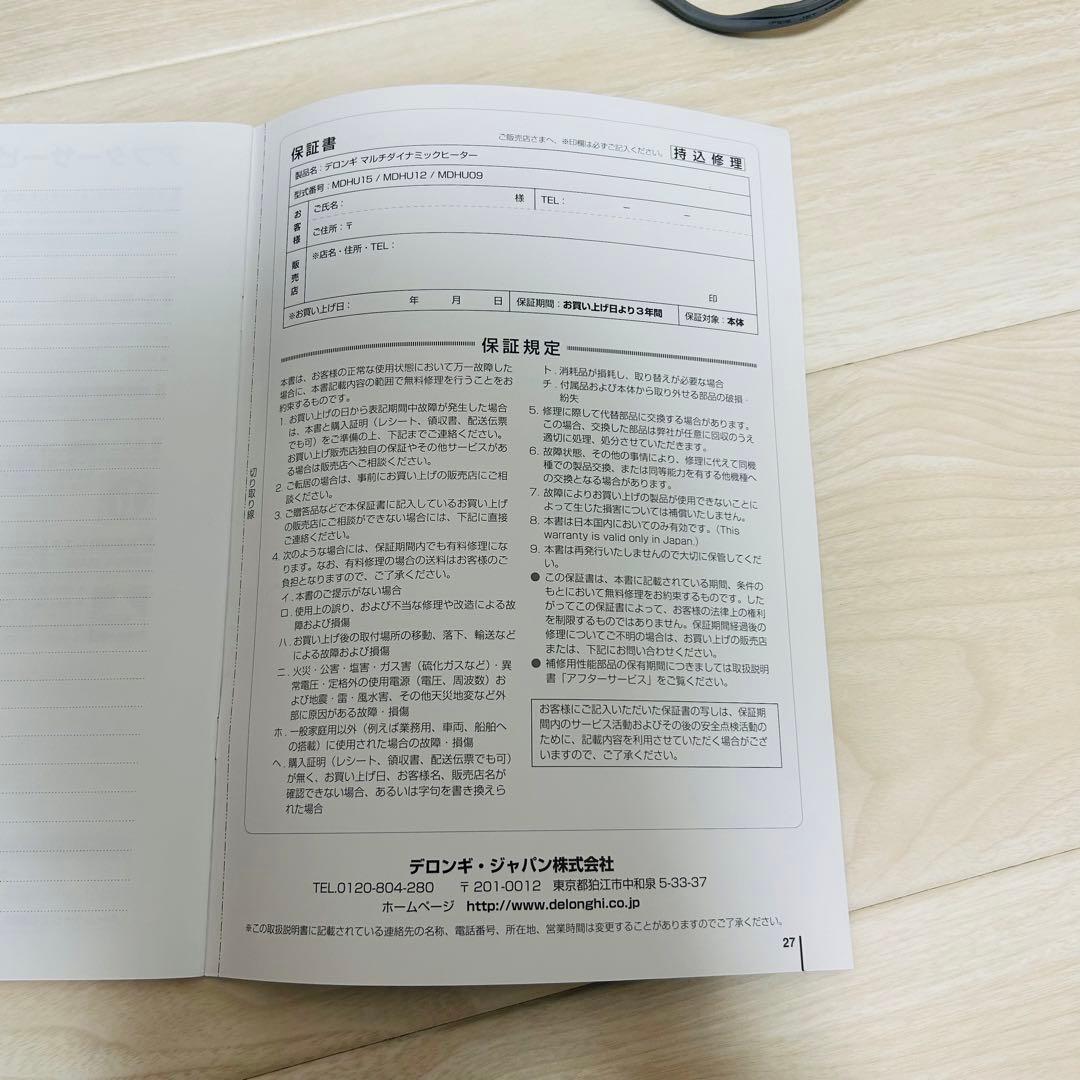 保証書
ご販売店さまへ、※印欄は必ずご記入ください。
持込修理
製品名：デロンギ マルチダイナミックヒーター
型式番号：MDHU15 / MDHU12 / MDHU09
お客様
ご氏名：
様
TEL：　－　－
ご住所：〒
販売店
※店名・住所・TEL：
印
※お買い上げ日：　年　月　日
保証期間：お買い上げ日より３年間
保証対象：本体
保証規定
本書は、お客様の正常な使用状態において万一故障した
場合に、本書記載内容の範囲で無料修理を行うことをお
約束するものです。
1. お買い上げの日から表記期間中故障が発生した場合
は、本書と購入証明（レシート、領収書、配送伝票
でも可）をご準備の上、下記までご連絡ください。
お買い上げ販売店独自の保証やその他サービスがあ
る場合は販売店へご相談ください。
2. ご転居の場合は、事前にお買い上げの販売店にご相
談ください。
3. ご贈答品などで本保証書に記入しているお買い上げ
の販売店にご相談ができない場合には、下記に直接
ご連絡ください。
4. 次のような場合には、保証期間内でも有料修理にな
ります。なお、有料修理の場合の送料はお客様のご
負担となりますので、ご了承ください。
イ. 本書のご提示がない場合
ロ. 使用上の誤り、および不当な修理や改造による故
障および損傷
ハ. お買い上げ後の取付場所の移動、落下、輸送など
による故障および損傷
ニ. 火災・公害・塩害・ガス害（硫化ガスなど）・異
常電圧・定格外の使用電源（電圧、周波数）お
よび地震・雷・風水害、その他天災地変など外
部に原因がある故障・損傷
ホ. 一般家庭用以外（例えば業務用、車両、船舶へ
の搭載）に使用された場合の故障・損傷
ヘ. 購入証明（レシート、領収書、配送伝票でも可）
が無く、お買い上げ日、お客様名、販売店名が
確認できない場合、あるいは字句を書き換えら
れた場合
ト. 消耗品が損耗し、取り替えが必要な場合
チ. 付属品および本体から取り外せる部品の破損・
紛失
5. 修理に際して代替部品に交換する場合があります。
この場合、交換した部品は弊社が任意に回収のうえ
適切に処理、処分させていただきます。
6. 故障状態、その他の事情により、修理に代えて同機
種での製品交換、または同等能力を有する他機種へ
の交換となる場合があります。
7. 故障によりお買い上げの製品が使用できないことに
よって生じた損害については補償いたしません。
8. 本書は日本国内においてのみ有効です。(This
warranty is valid only in Japan.)
9. 本書は再発行いたしませんので大切に保管してくだ
い。
● この保証書は、本書に記載されている期間、条件の
もとにおいて無料修理をお約束するものです。した
がってこの保証書によって、お客様の法律上の権利
を制限するものではありません。保証期間経過後の
修理についてご不明の場合は、お買い上げの販売店
または、下記にお問い合わせください。
● 補修用性能部品の保有期間につきましては取扱説明
書「アフターサービス」をご覧ください。
お客様にご記入いただいた保証書の写しは、保証期
間内のサービス活動およびその後の安全点検活動の
ために、記載内容を利用させていただく場合がござ
いますので、ご了承ください。
切り取り線
デロンギ・ジャパン株式会社
TEL.0120-804-280　〒201-0012　東京都狛江市中和泉 5-33-37
ホームページ　http://www.delonghi.co.jp
※この取扱説明書に記載されている連絡先の名称、電話番号、所在地、営業時間は変更することがありますのでご了承ください。
27